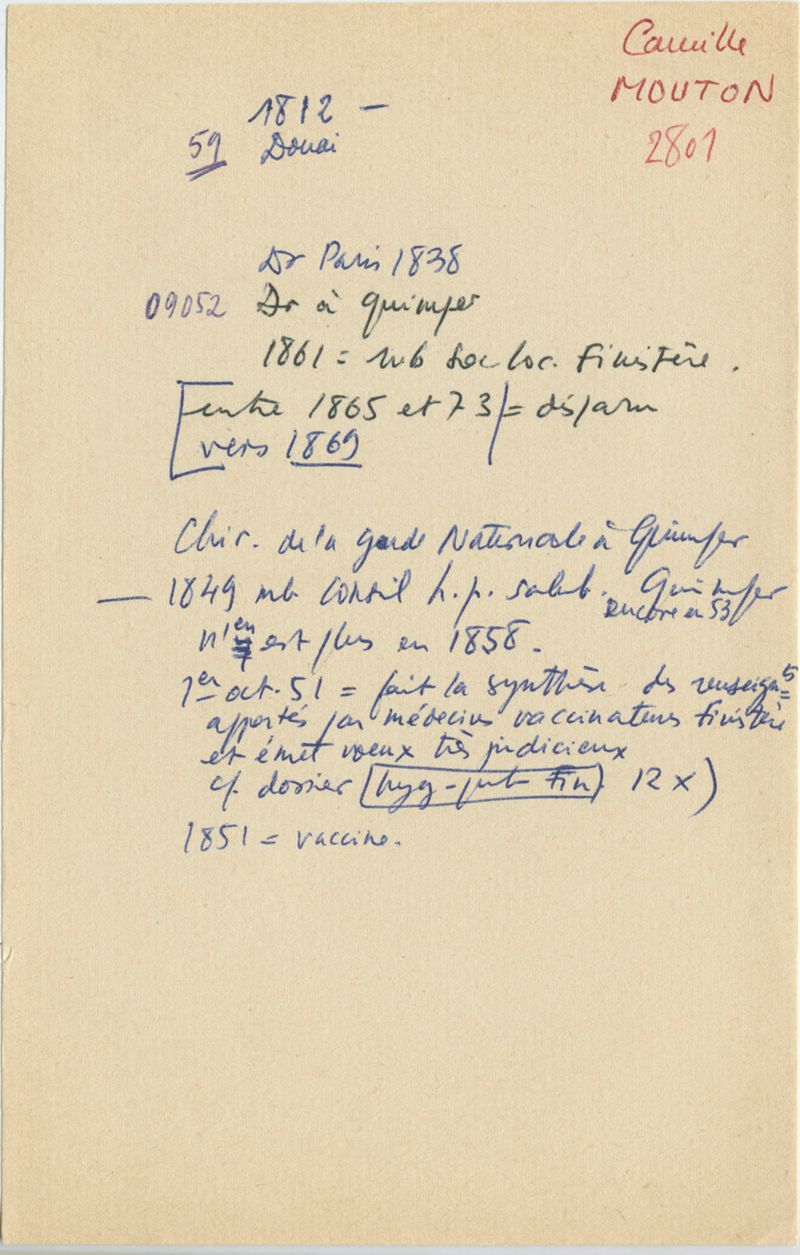 Camille
MOUTON
2801
1812 —
59 Douai
Dr Paris 1838
09052 Dr à Quimper
1861 = mb Soc loc. Finistère.
[entre 1865 et 73 = disparu
vers 1869
Chir. de la garde Nationale à Quimper
— 1849 mb Conseil h.p. salub. Quimper
encore en 53
n'en est plus en 1858.
1er oct. 51 = fait la synthèse des renseignts
apportés par médecins vaccinateurs Finistère
et émet voeux très judicieux
cf. dossier (hyg-pub Fin) 12 x)
1851 = vaccine.